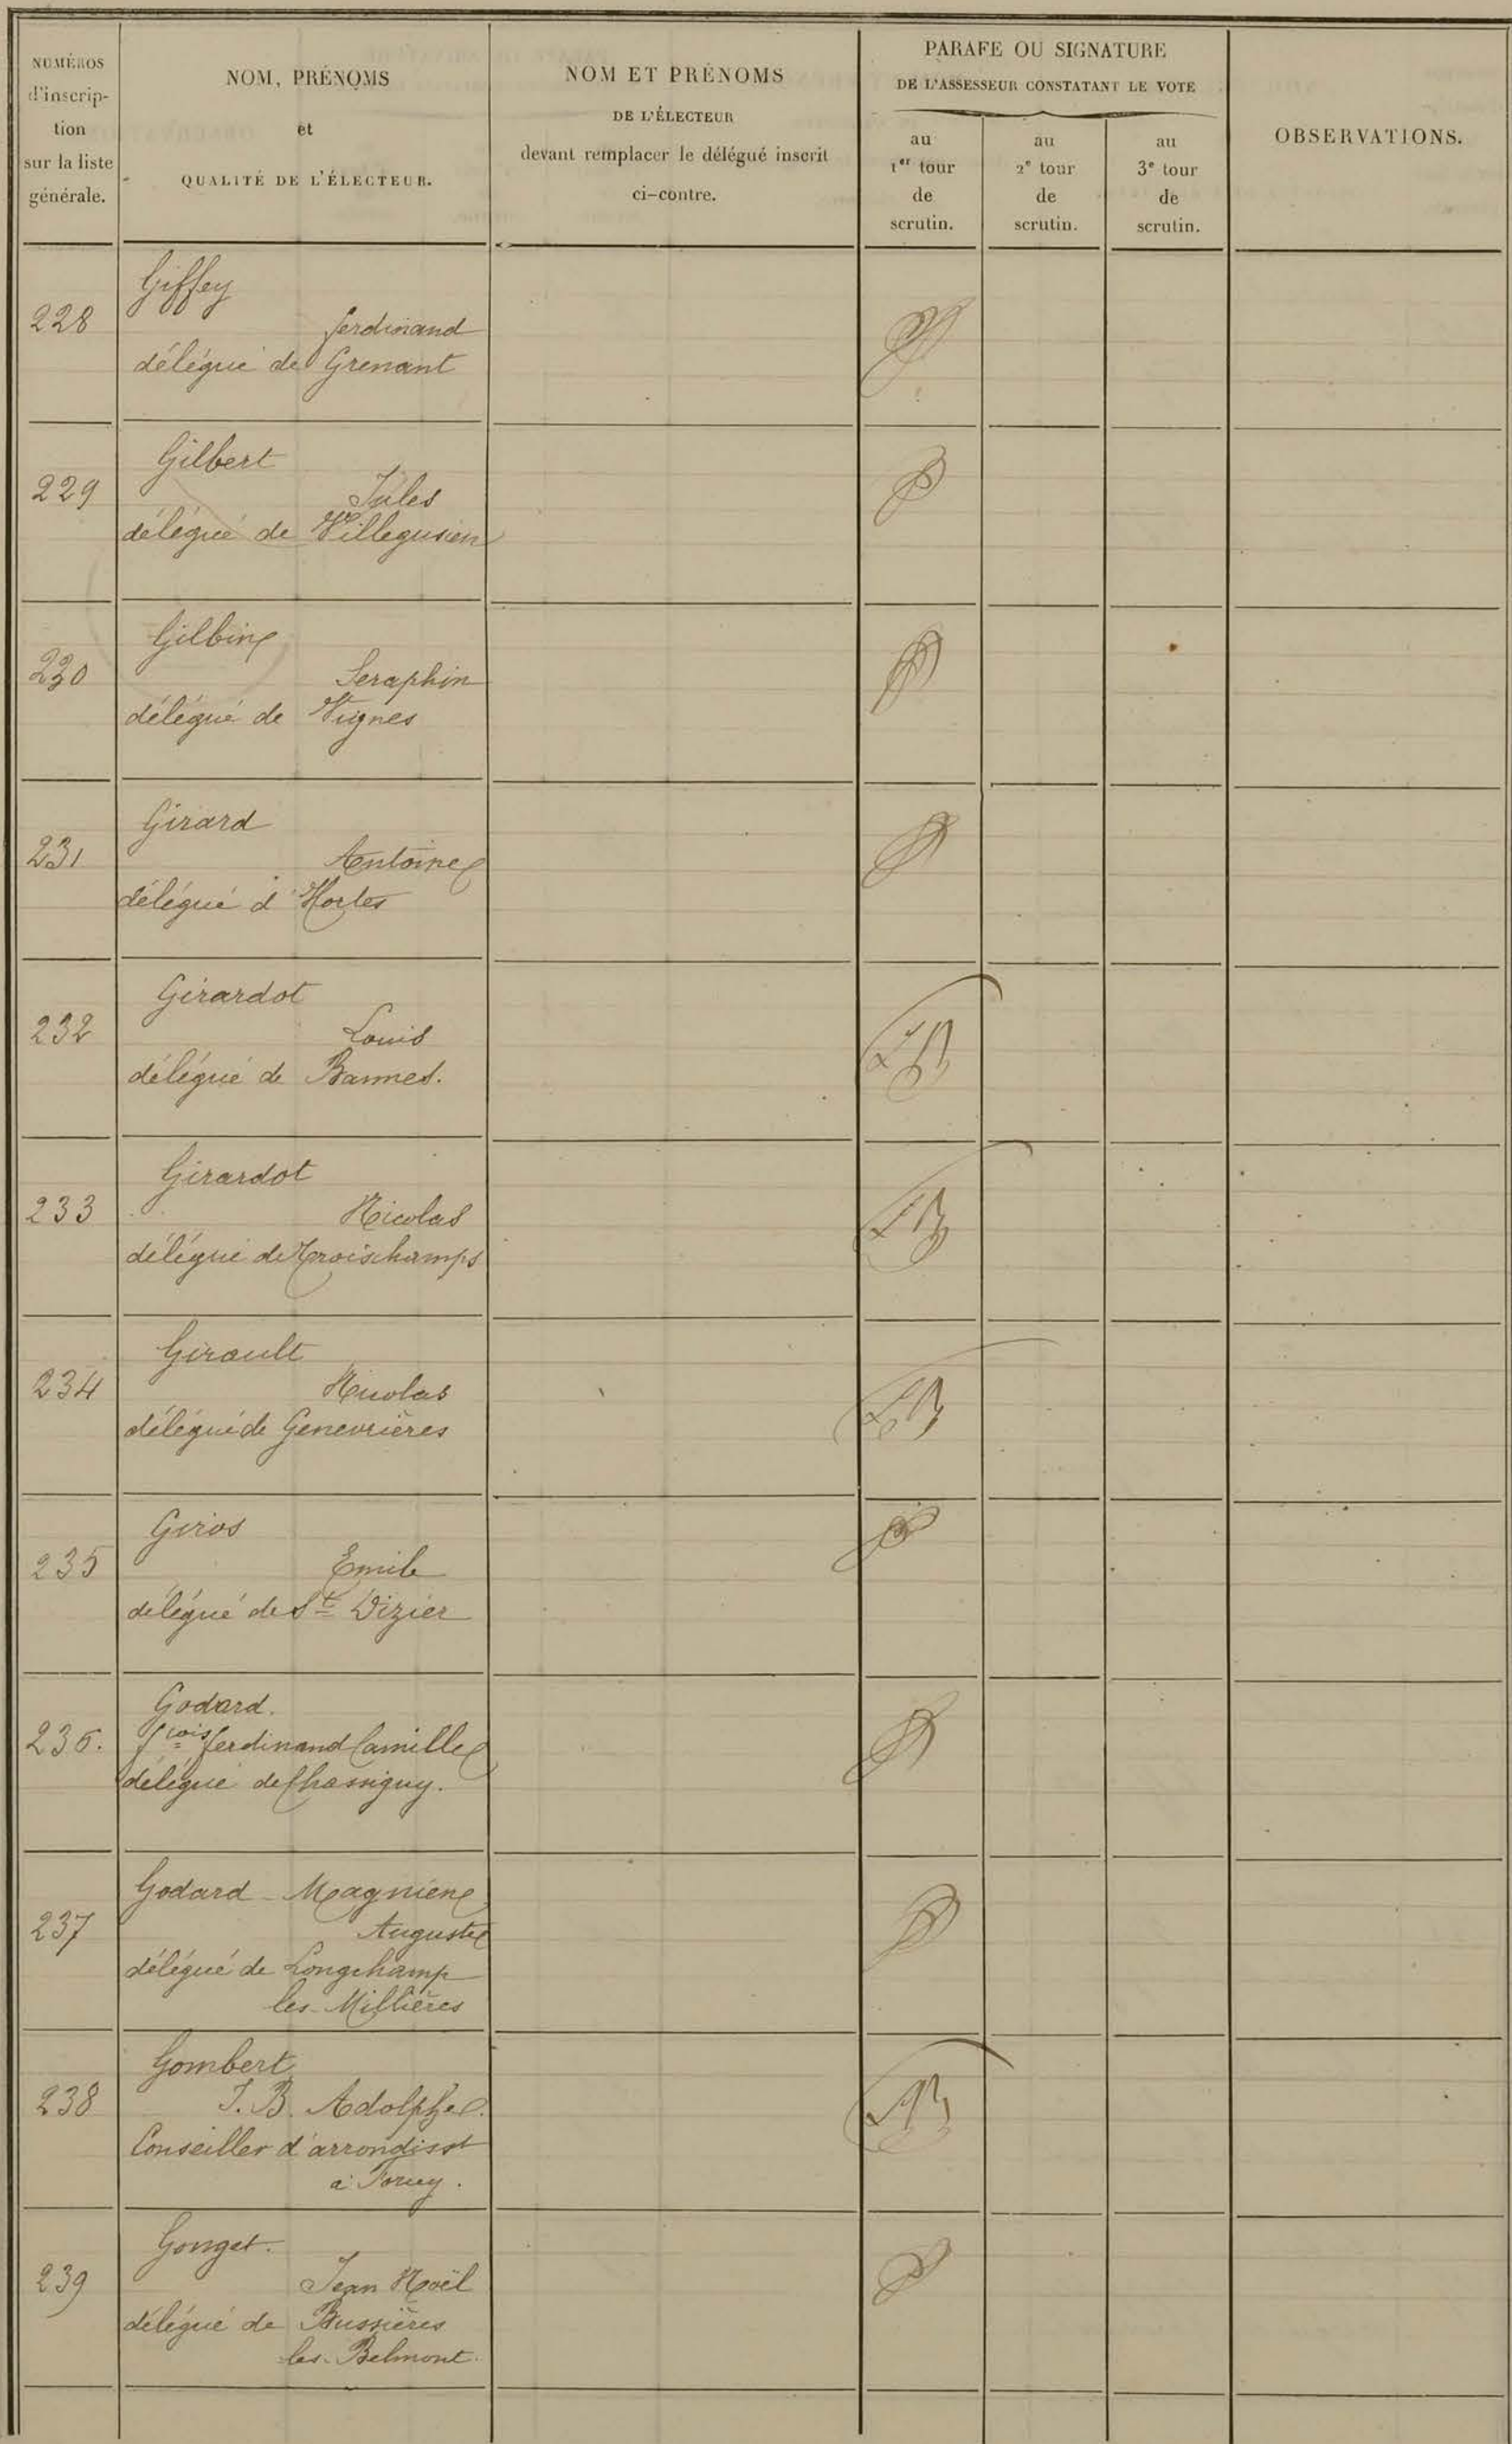 NUMÉROS
d'inscrip-
tion
sur la liste
générale.
NOM, PRÉNOMS
et
QUALITÉ DE L'ÉLECTEUR.
NOM ET PRÉNOMS
DE L'ÉLECTEUR
devant remplacer le délégué inscrit
ci-contre.
PARAFE OU SIGNATURE
DE L'ASSESSEUR CONSTATANT LE VOTE
au
1er tour
de
scrutin.
au
2e tour
de
scrutin.
au
3e tour
de
scrutin.
OBSERVATIONS.
Giffey
228
ferdinand
délégué de Grenant
Gilbert
229
Jules
délégué de Villegusien
Gilbin
230
Seraphin
délégué de Vignes
Girard
231
Antoine
délégué d'Hortes
Girardot
232
Louis
délégué de Bannes.
Girardot
233
Nicolas
délégué de Troischamps
Girault
234
Nicolas
délégué de Genevrières
Giros
235
Emile
délégué de St Dizier
Godard.
236.
fçois ferdinand Camille
délégué de Chassigny.
Godard - Magnien
237
Auguste
délégué de Longchamp
les-Millières
Gombert
238
J. B. Adolphe.
Conseiller d'arrondisst
à
Gonget.
239
Jean Noël
délégué de Bussières
les-Belmont.